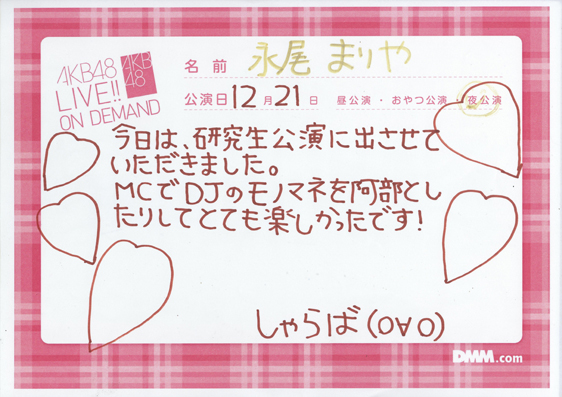 AKB48
LIVE!!
ON DEMAND
AKB
48
名前 永尾 まりや
公演日 12月21日 昼公演・おやつ公演・夜公演
今日は、研究生公演に出させて
いただきました。
MCでDJのモノマネを阿部とし
たりしてとても楽しかったです!
しゃらば(O∀O)
DMM.com